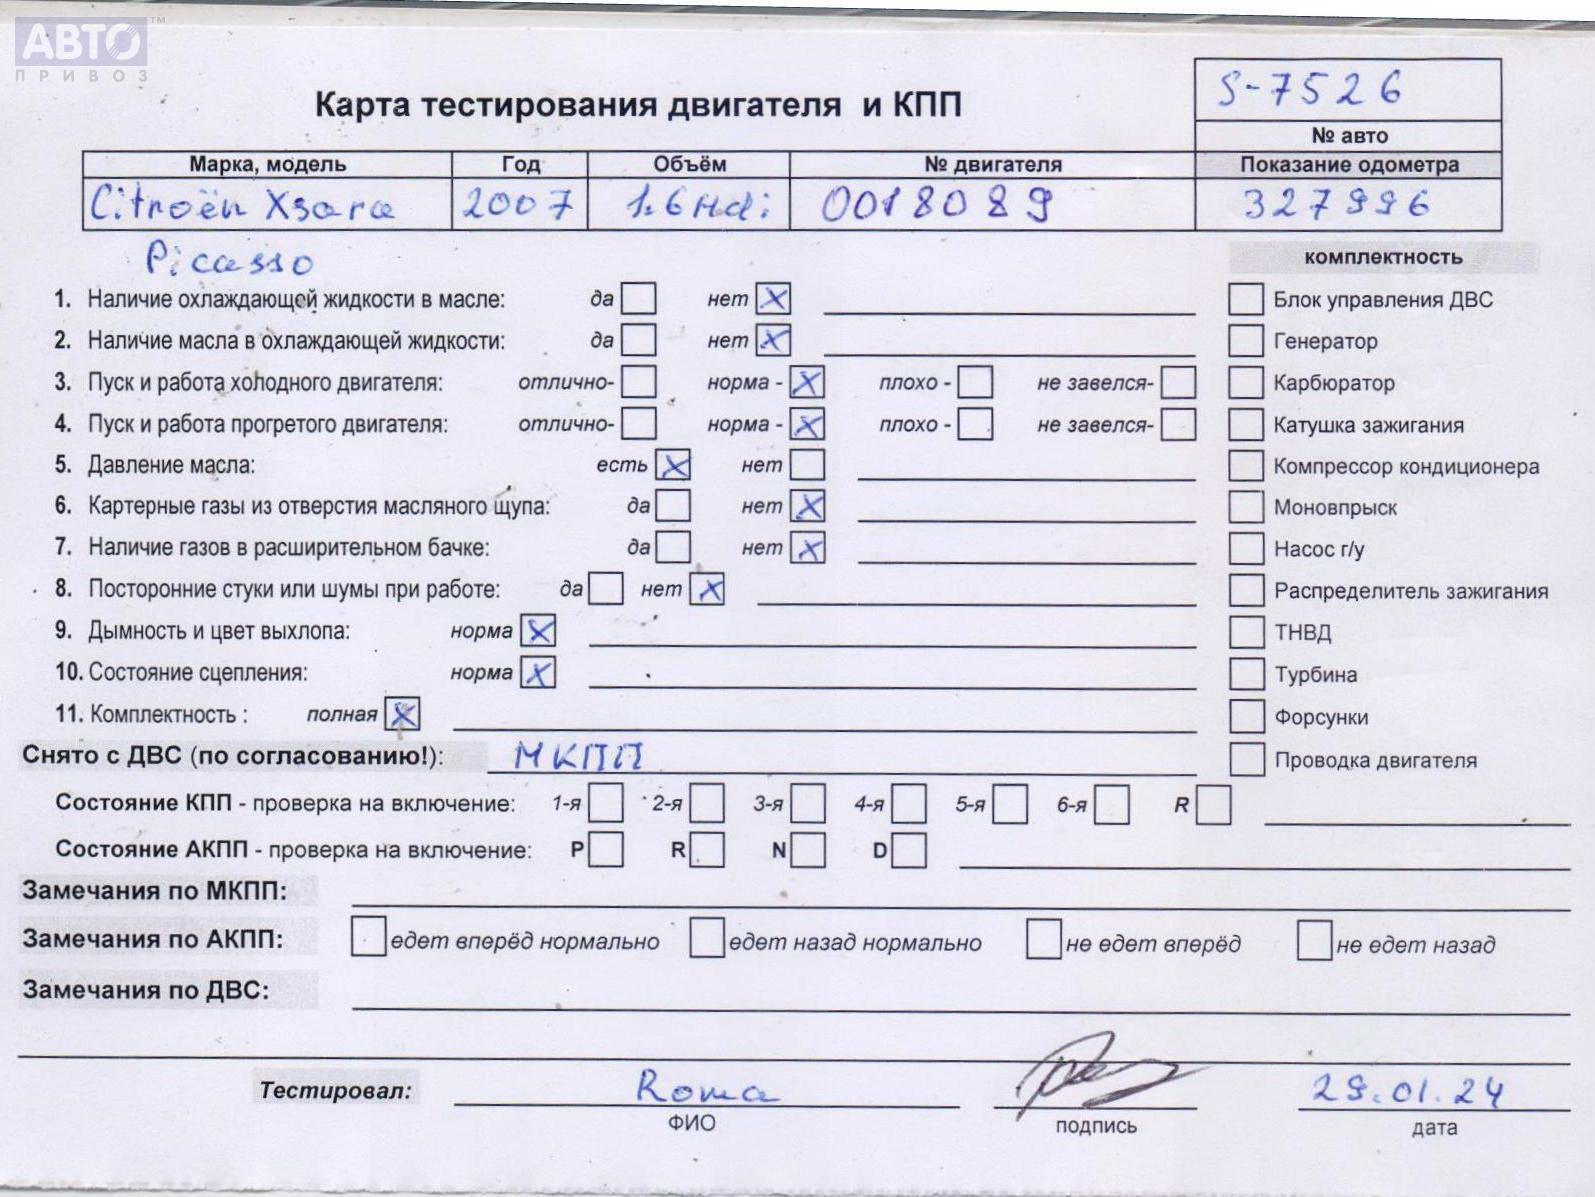 АВТО™
ПРИВОЗ
S-7526
Карта тестирования двигателя и КПП
№ авто
Марка, модель Год Объём № двигателя Показание одометра
Citroën Xsara 2007 1.6Hdi 0018089 327996
Picasso
комплектность
1. Наличие охлаждающей жидкости в масле: да нет X Блок управления ДВС
2. Наличие масла в охлаждающей жидкости: да нет X Генератор
3. Пуск и работа холодного двигателя: отлично- норма - X плохо - не завелся- Карбюратор
4. Пуск и работа прогретого двигателя: отлично- норма - X плохо - не завелся- Катушка зажигания
5. Давление масла: есть X нет Компрессор кондиционера
6. Картерные газы из отверстия масляного щупа: да нет X Моновпрыск
7. Наличие газов в расширительном бачке: да нет X Насос г/у
8. Посторонние стуки или шумы при работе: да нет X Распределитель зажигания
9. Дымность и цвет выхлопа: норма X ТНВД
10. Состояние сцепления: норма X Турбина
11. Комплектность : полная X Форсунки
Снято с ДВС (по согласованию!): МКПП Проводка двигателя
Состояние КПП - проверка на включение: 1-я 2-я 3-я 4-я 5-я 6-я R
Состояние АКПП - проверка на включение: P R N D
Замечания по МКПП:
Замечания по АКПП: едет вперёд нормально едет назад нормально не едет вперёд не едет назад
Замечания по ДВС:
Тестировал: Roma 29.01.24
ФИО подпись дата